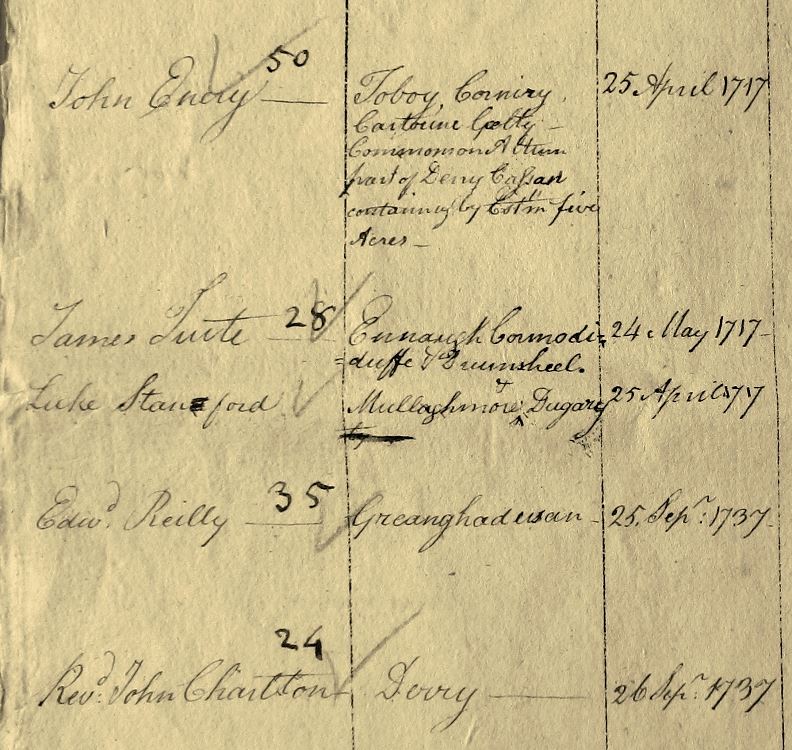 John Enery 50 Toboy Corniry 25 April 1717
Cartrine Gelty
Commomon A
part of Derry Cassan
containing by Estm. five
Acres
James Tuite 28 Ennaugh Cormodi= 24 May 1717
=duffe & Drumsheel.
Luke Stanford Mullaghmore & Dugary 25 April 1717
Edwd. Reilly 35 Greanghadusan 25 Sepr. 1737
24
Revd. John Charlton Derry 26 Sepr. 1737